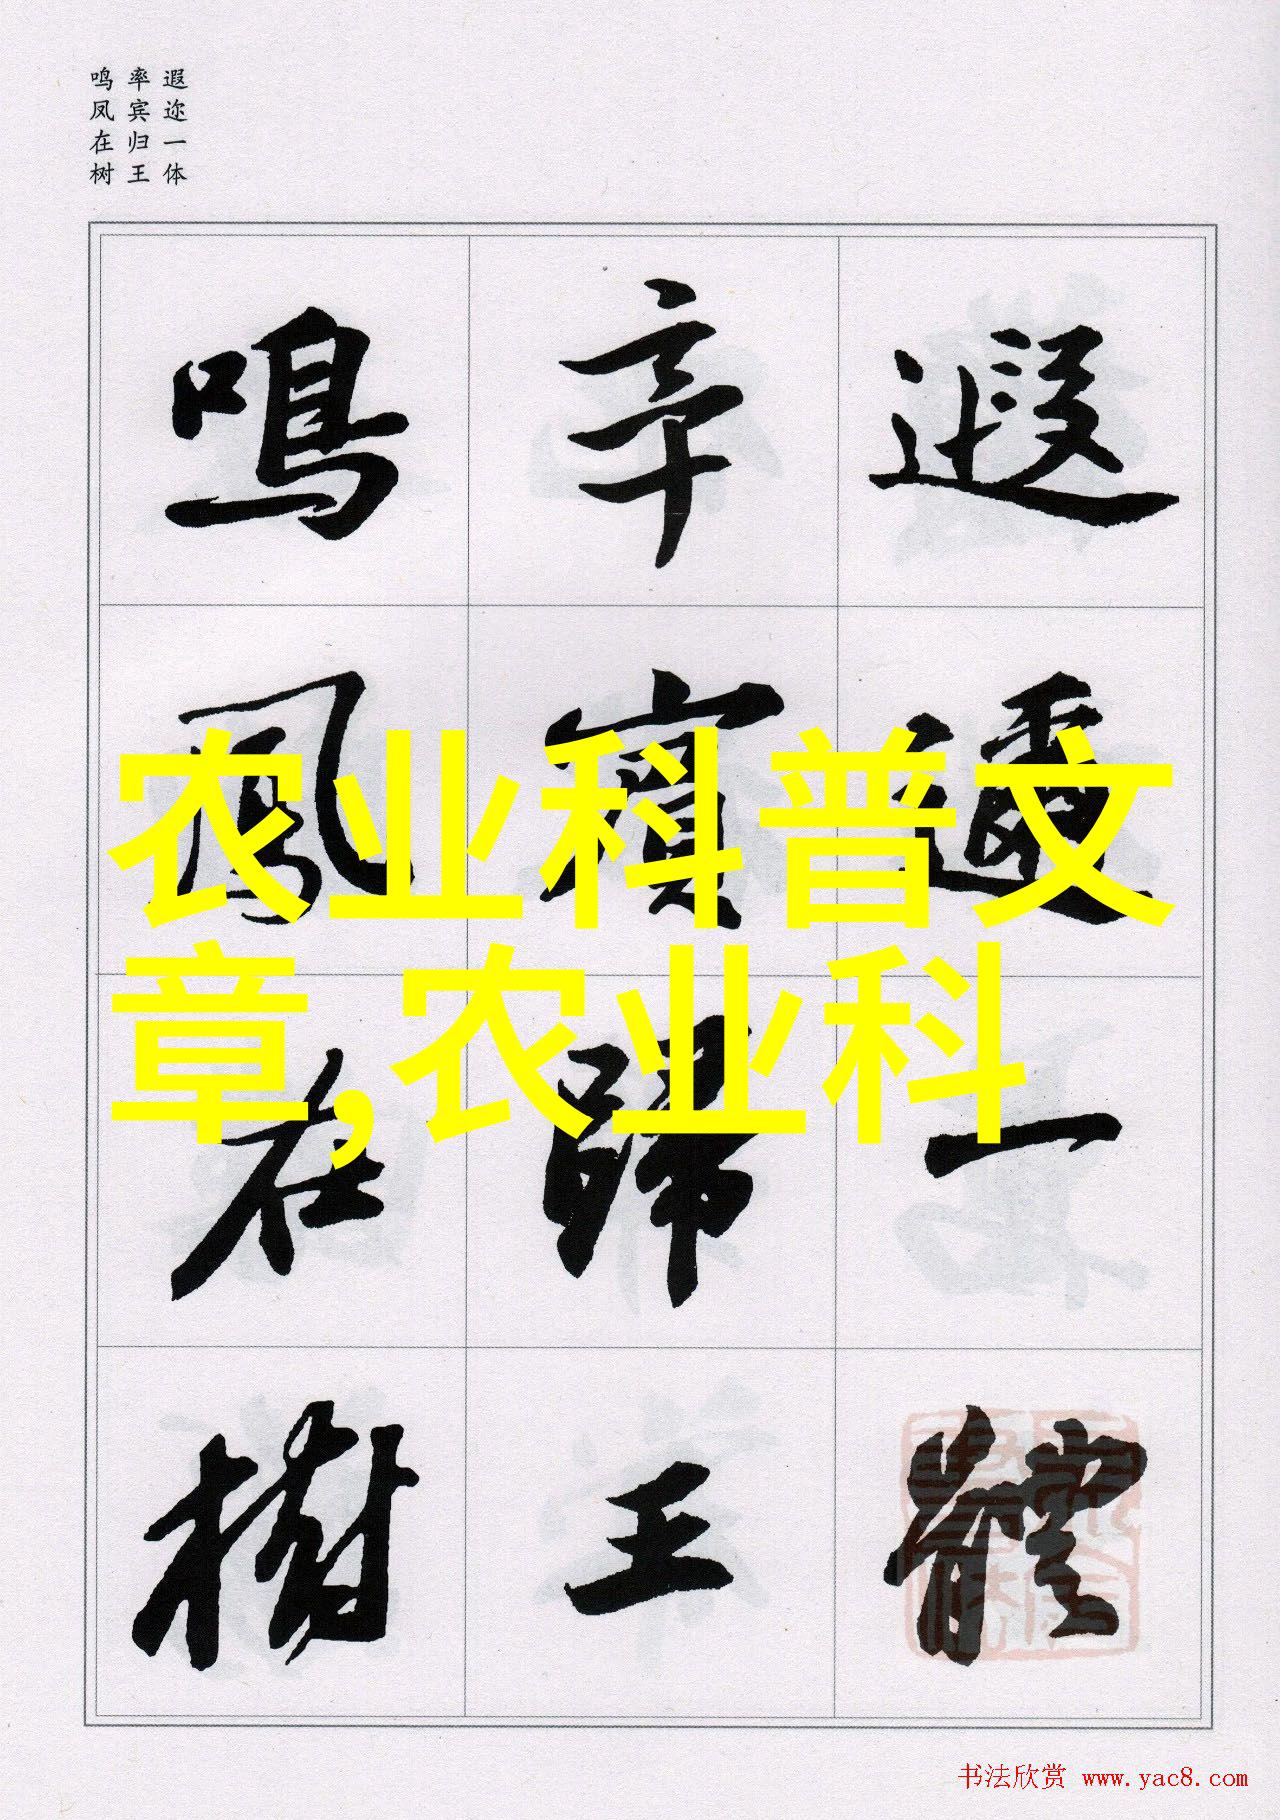 遐迩一体
率宾归王
鸣凤在树
遐邇一體
率賓歸王
鳴鳳在樹
农业科普文
章,农业科
书法欣赏 www.yac8.com